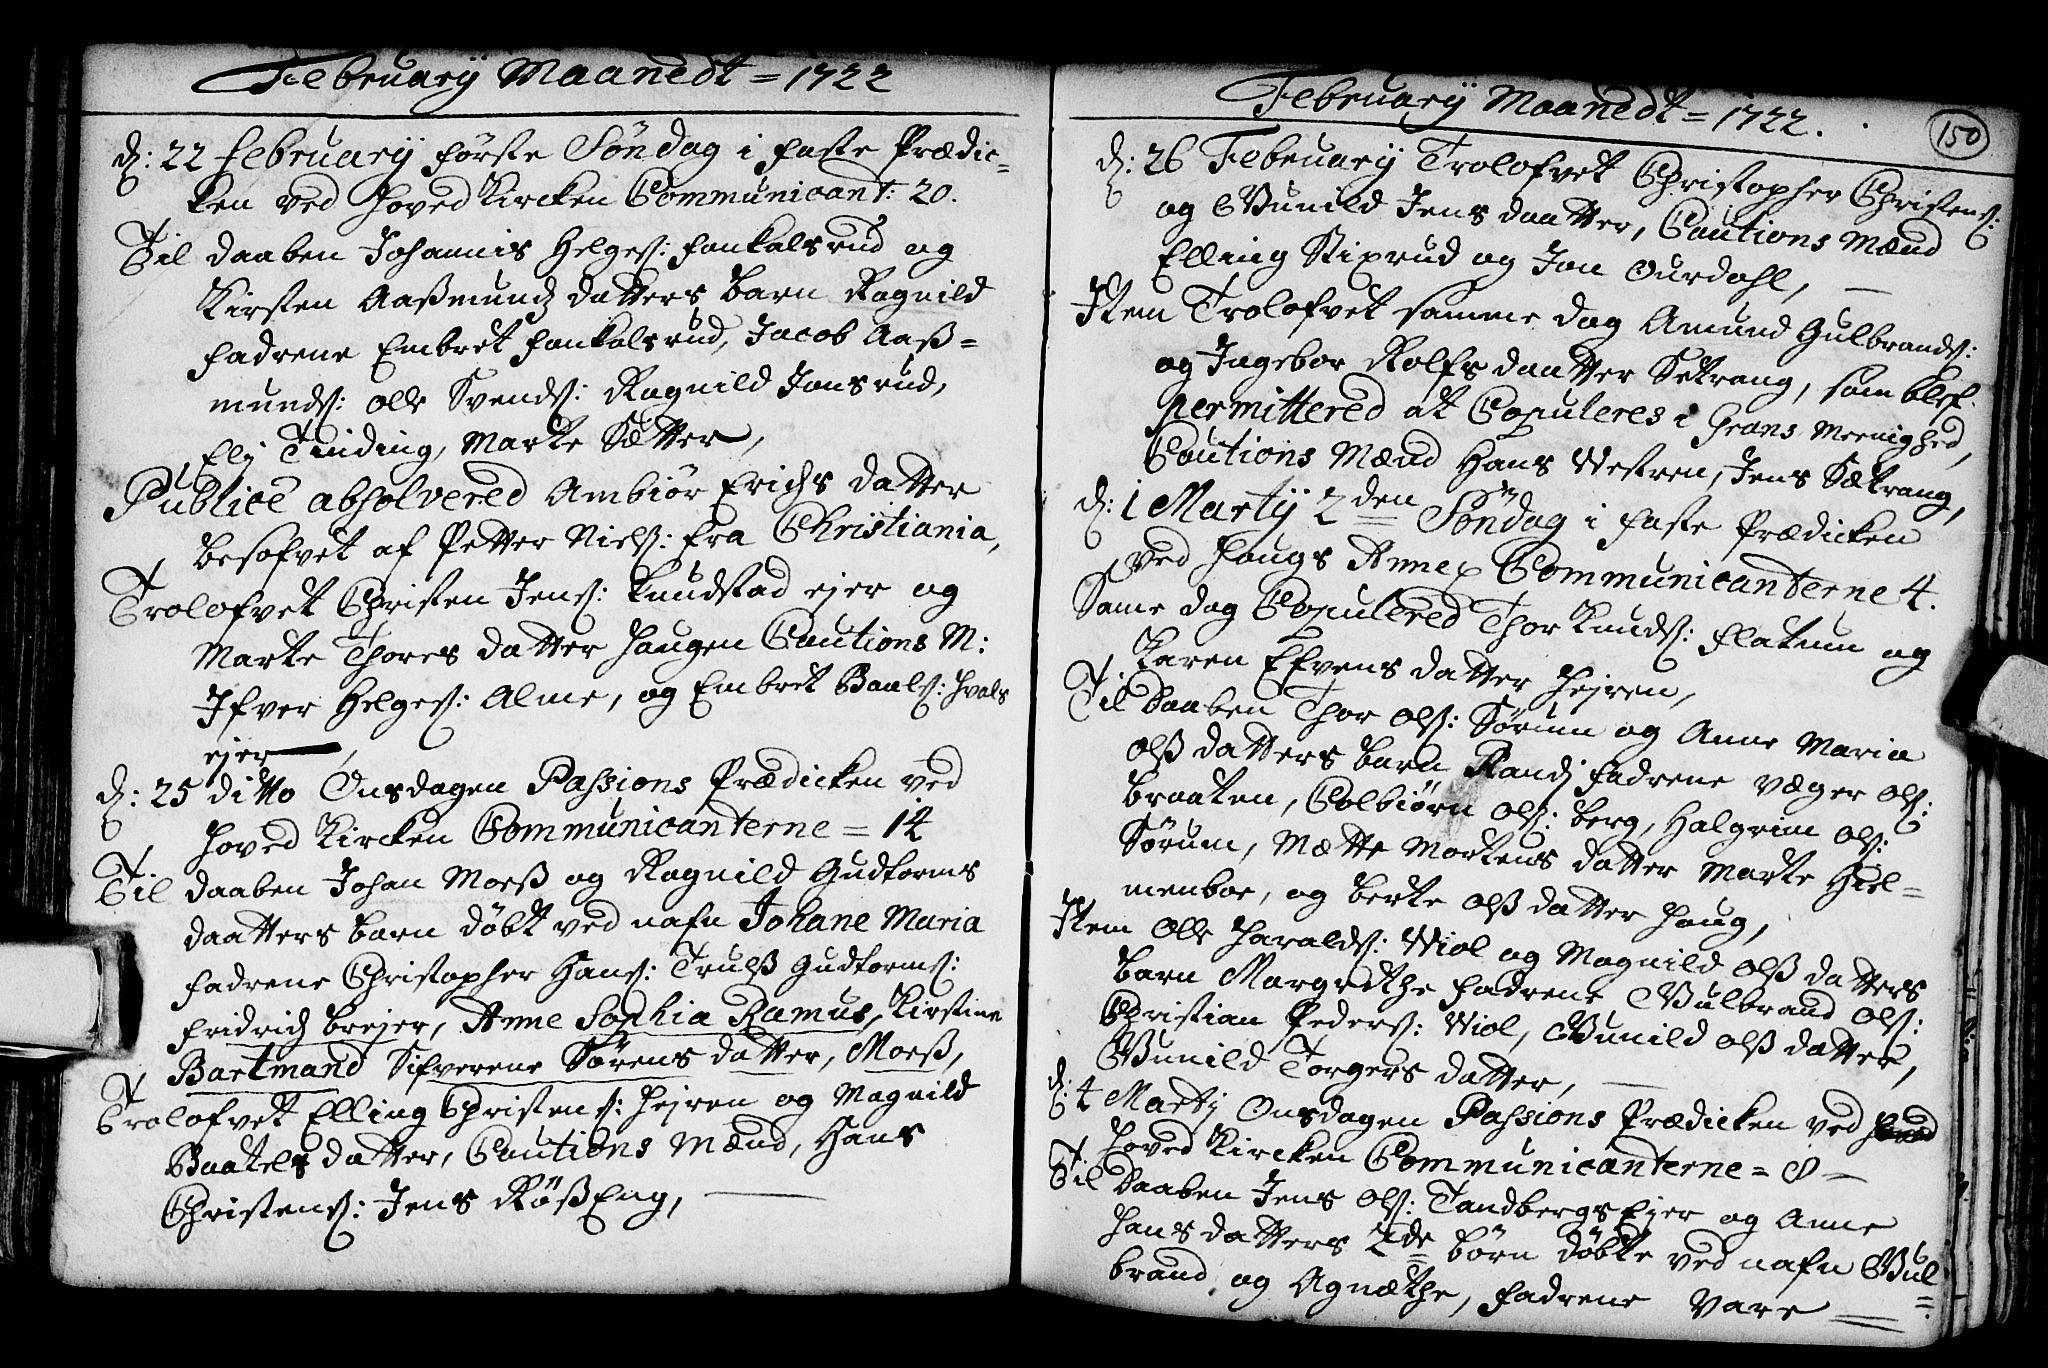 February Maanedt = 1722
d: 22 February förste Söndag i faste Prædic=
ken ved Hoved Kircken Communicant: 20.
Til daaben Johannis Helges: Fankalsrud og
Kirsten Aaßmunds datters barn Ragnild
fadrene Embret Fankalsrud, Jacob Aaß=
munds: Olle Svends: Ragnild Jonsrud,
Elj Tinding, Marte Sætter,
Publicè absolvered Ambiör Erichs datter
besofvet af Petter Niels: fra Christiania,
Trolofvet Christen Jens: Knudstad ejer og
Marte Thores datter Haugen Cautions M:
Ifver Helges: Alme, og Embret Baals: Hvals
ejer
d: 25 ditto Onsdagen Passions Prædicken ved
Hoved Kircken Communicanterne = 14
Til daaben Johan Moeß og Ragnild Gudtorms
daatters barn döbt ved nafn Johane Maria
fadrene Christopher Hans: Truls Gudtorms:
Fridrich Brejer, Anne Sophia Ramus, Kirstine
Bartmand Sifverene Sörens datter, Moeß,
Trolofvet Elling Christens: Hejren og Magnild
Baatels datter, Cautions Mænd, Hans
Christens: Jens Rößeng,
February Maanedt = 1722.
150
d: 26 February Trolofvet Christopher Christens:
og Gunild Jens daatter, Cautions Mænd
Elling Stixrud og Jon Ourdahl,
Item Trolofvet samme dag Amund Gulbrands:
og Ingebor Rolfs daatter Setrang, som blef
permittered at Copuleres i Grans Meenighed,
Cautions Mænd Hans Vestren, Jens Sætrang,
d: 1 Martij 2den Söndag i faste Prædicken
ved Haugs Annex Communicanterne 4.
Same dag Copulered Thor Knuds: Flatum og
Karen Efvens datter Hejren,
Til Daaben Thor Ols: Sörum og Anne Maria
Olß datters barn Randj fadrene Væger Ols:
Braaten, Colbiörn Ols: Berg, Halgrim Ols:
Sörum, Mætte Mortens datter Marte Hiel=
menboe, og Berte Olß datter Haug,
Item Olle Haralds: Viol og Magnild Olß datters
barn Margrethe fadrene Gulbrand Ols:
Christian Peders: Viol, Gunild Olß datter,
Gunild Torgers datter,
d: 4 Martij Onsdagen Passions Prædicken ved
Hoved Kircken Communicanterne = 8
Til Daaben Jens Ols: Tandbergs Ejer og Anne
Hans datters 2de börn döbte ved nafn Gul
brand, og Agnæthe, fadrene Vare =